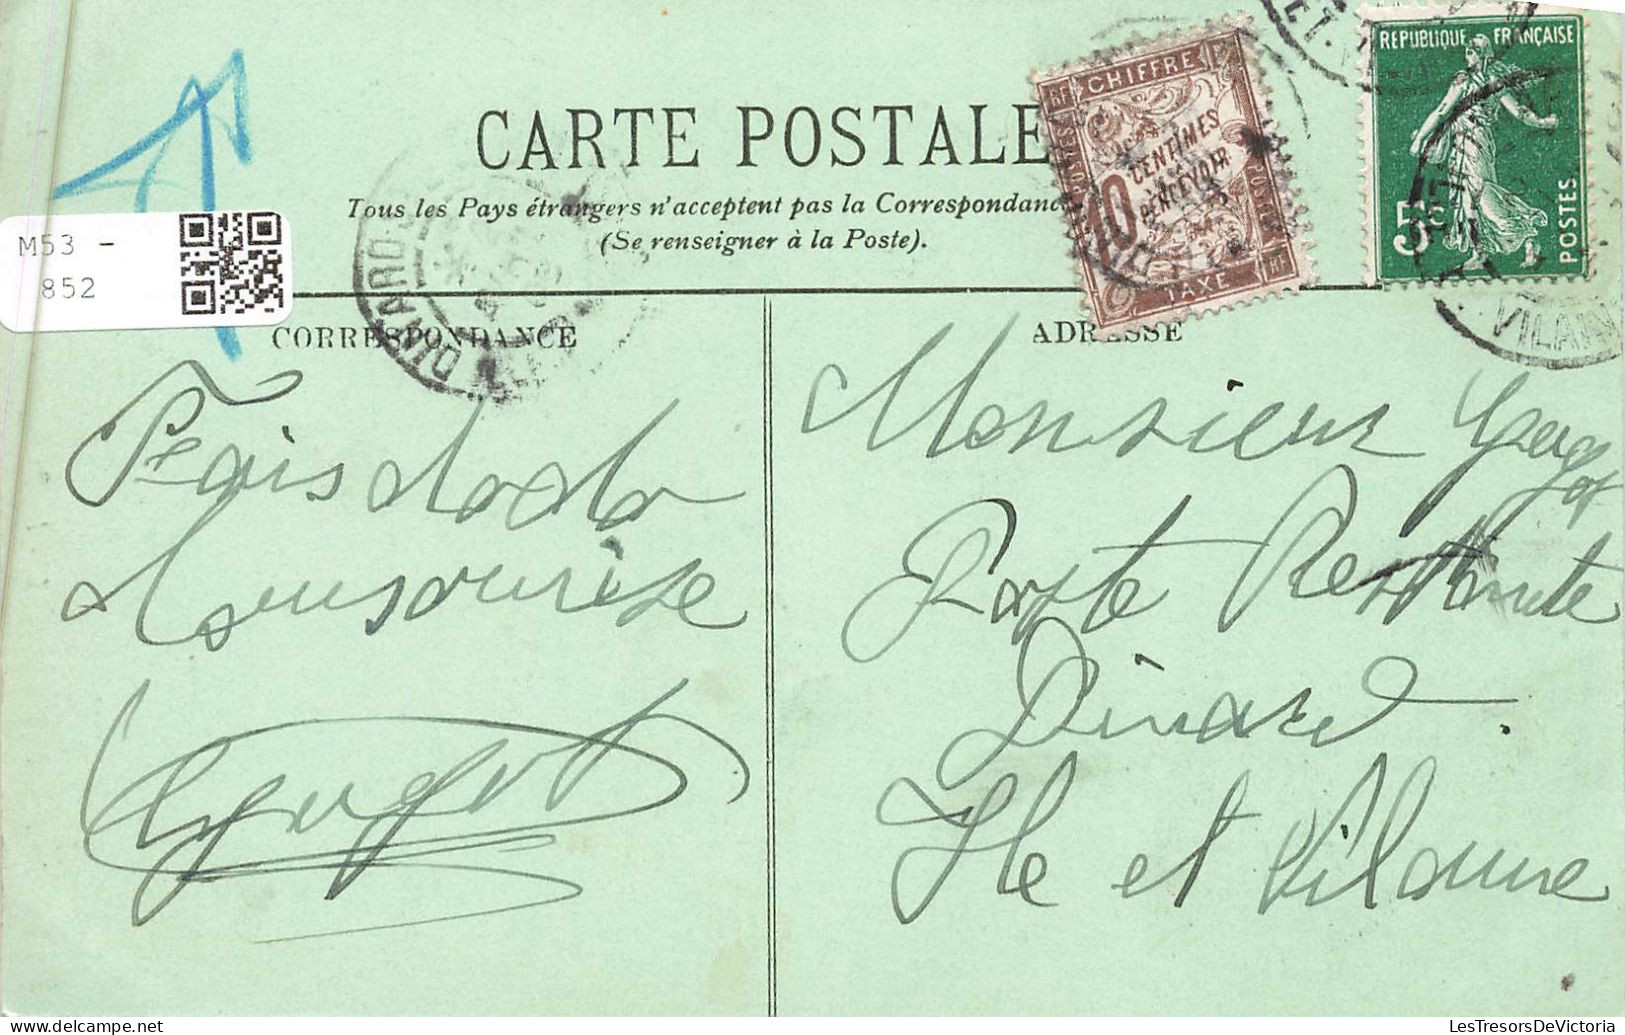 CARTE POSTALE
Tous les Pays étrangers n'acceptent pas la Correspondance
(Se renseigner à la Poste).
RF CHIFFRE
POSTES
10 CENTIMES
A PERCEVOIR
POSTES
TAXE RF
REPUBLIQUE FRANÇAISE
5c
POSTES
DINARD
VILAINE
M53 -
852
CORRESPONDANCE
ADRESSE
Fais dodo
Monsieur
Poste Restante
Dinard
Ile et Vilaine
LesTresorsDeVictoria
delcampe.net